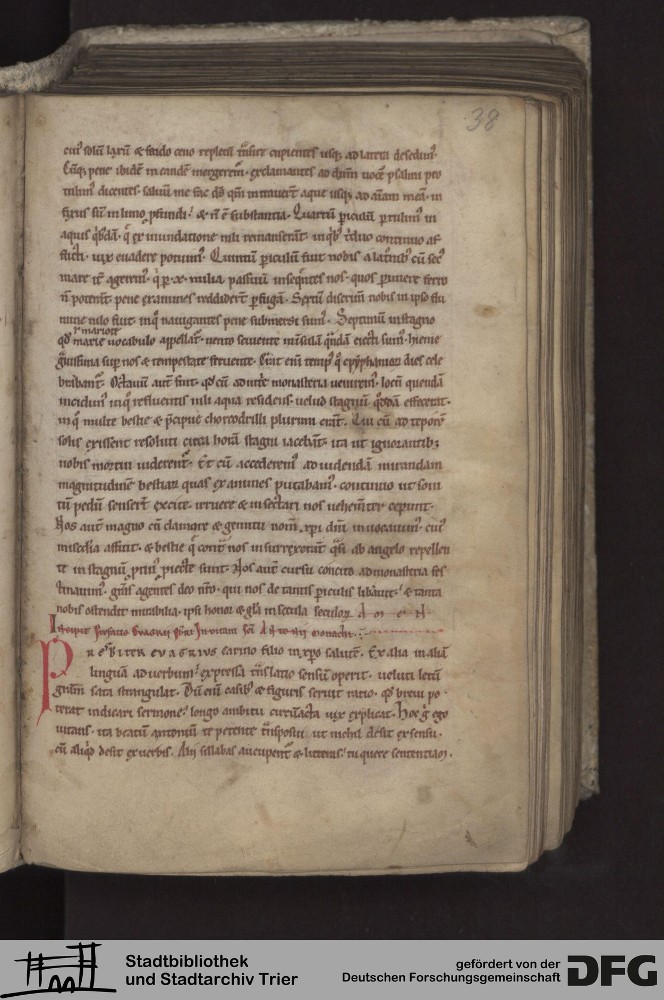 38
eiuˢ solū laxū & fetido ceno repletū trāsire cupientes usq; ad latera descendimˀ.
Cūq; pene ibidē in eandē mergeremˀ. exclamantes ad dn̄m uocē psalmi pro
tulimˀ dicentes. saluū me fac dˢ qm̄ intrauerˉt aque usq; ad aīam meā. in
fixus sū in limo ꝓfundi. & n̄ ē substantia. Quartū ꝑiculū ꝑtulimˀ in
aquis
ex inundatione nili remanserāt. in qⁱbˀ triduo continuo af
flicti. uix euadere potuimˀ. Quintū ꝑiculū fuit nobis a latronibˀ cū secˀ
mare iter ageremˀ. qⁱ ꝑ .x. milia passuū inseqⁿtes nos. quos ꝑimere ferro
n̄ poterant pene exanimes reddiderˉt ꝑ fugā. Sextū discrimˉ nobis in ipso flu
mine nilo fuit. in qͦ nauigantes pene submersi sumˀ. Septimū in stagno
ł mariotē
qd̄ marie uocabulo appellatˀ. uento seuiente in insulā qⁿdā eiecti sumˀ. hieme
grauissima sup nos & tempestate feruente. Erat enī tempˀ qͦ epyphaniorū dies cele
brabantˀ. Octauū autē fuit. qd̄ cū ad nitrie monasteria ueniremˀ. locū quendā
incidimˀ in qͦ refluentis nili aqua residens. uelud stagnū qͦddā effecerat.
in qͦ multe bestie & precipue chorcodrilli plurimi erāt. Qui cū ad teporē
solis exissent resoluti circa horā stagni iacebāt. ita ut ignorantibꝫ
nobis mortui uiderentˀ. Et cū accederemˀ ad uidendā mirandam
magnitudinē bestiarū quas exanimes putabamˀ. continuo ut soni
tū pedū senserˉt excite. irruere & insectari nos uehemˉter ceperunt.
Nos autē magno cū clamore & gemitu nomˉ xpi dn̄i inuocauimˀ. cuiˀ
misedia affuit. & bestie que contra nos insurrexerāt quasi ab angelo repellen
te in stagnū priˀ piecte sunt. Nos autē cursu concito ad monasteria fes
tinauimˀ. grās agentes deo nr̄o. qui nos de tantis ꝑiculis liberauit. & tanta
nobis ostendit mirabilia. ipsi honor & gl̄a in secula seculorꝝ. A m e N
Incipit prefatio Euagrii pbr̄i In vitam sc̄i Antonii monachi.
Presbiter evagrius carino filio in xp̄o salutē. Ex alia in aliā
linguā ad uerbumˉ expressa trāslatio sensū operit. ueluti letū
gramˉ sata strangulat. Dū enī casibˀ & figuris seruit ratio. qd̄ breui po
terat indicari sermone. longo ambitu circūacta uix explicat. Hoc gͦ ego
uitans. ita beatū antoniū te petente trāsposui. ut nichil desit ex sensu.
cū aliqͥd desit ex uerbis. Alii sillabas aucupentˀ & litteras. tu quere sententiam.
Stadtbibliothek
und Stadtarchiv Trier
gefördert von der
Deutschen Forschungsgemeinschaft
DFG